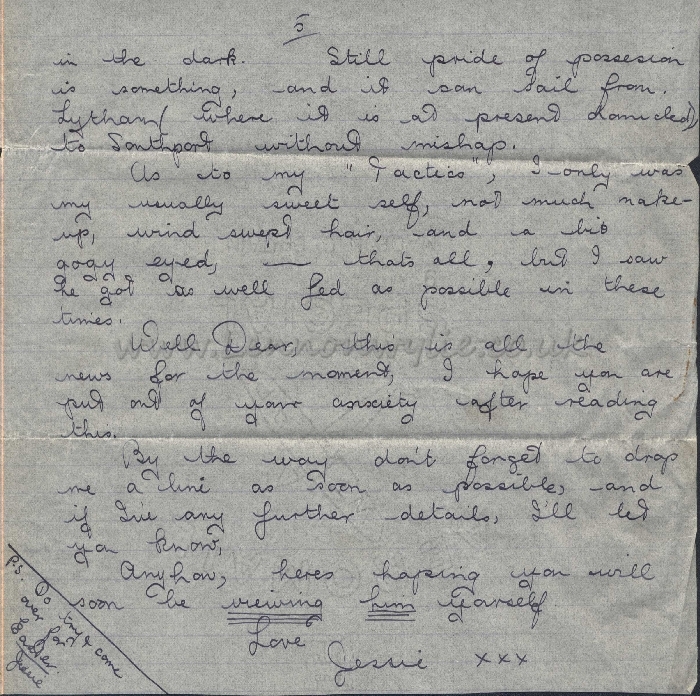 5
in the dark. Still pride of possesion
is something, and it can sail from.
Lytham (where it is at present domicled)
to Southport without mishap.
As to my "Tactics", I only was
my usually sweet self, not much make-
up, wind swept hair, and a bit
gogy eyed, — thats all, but I saw
he got as well fed as possible in these
times.
Well Dear, this is all the
news for the moment, I hope you are
put out of your anxiety after reading
this.
By the way don't forget to drop
me a line as soon as possible, and
if I've any further details, I'll let
you know,
Anyhow, heres hoping you will
soon be viewing him yourself.
Love
Jessie xxx
P.S. Do try & come
over for
Easter.
Jessie